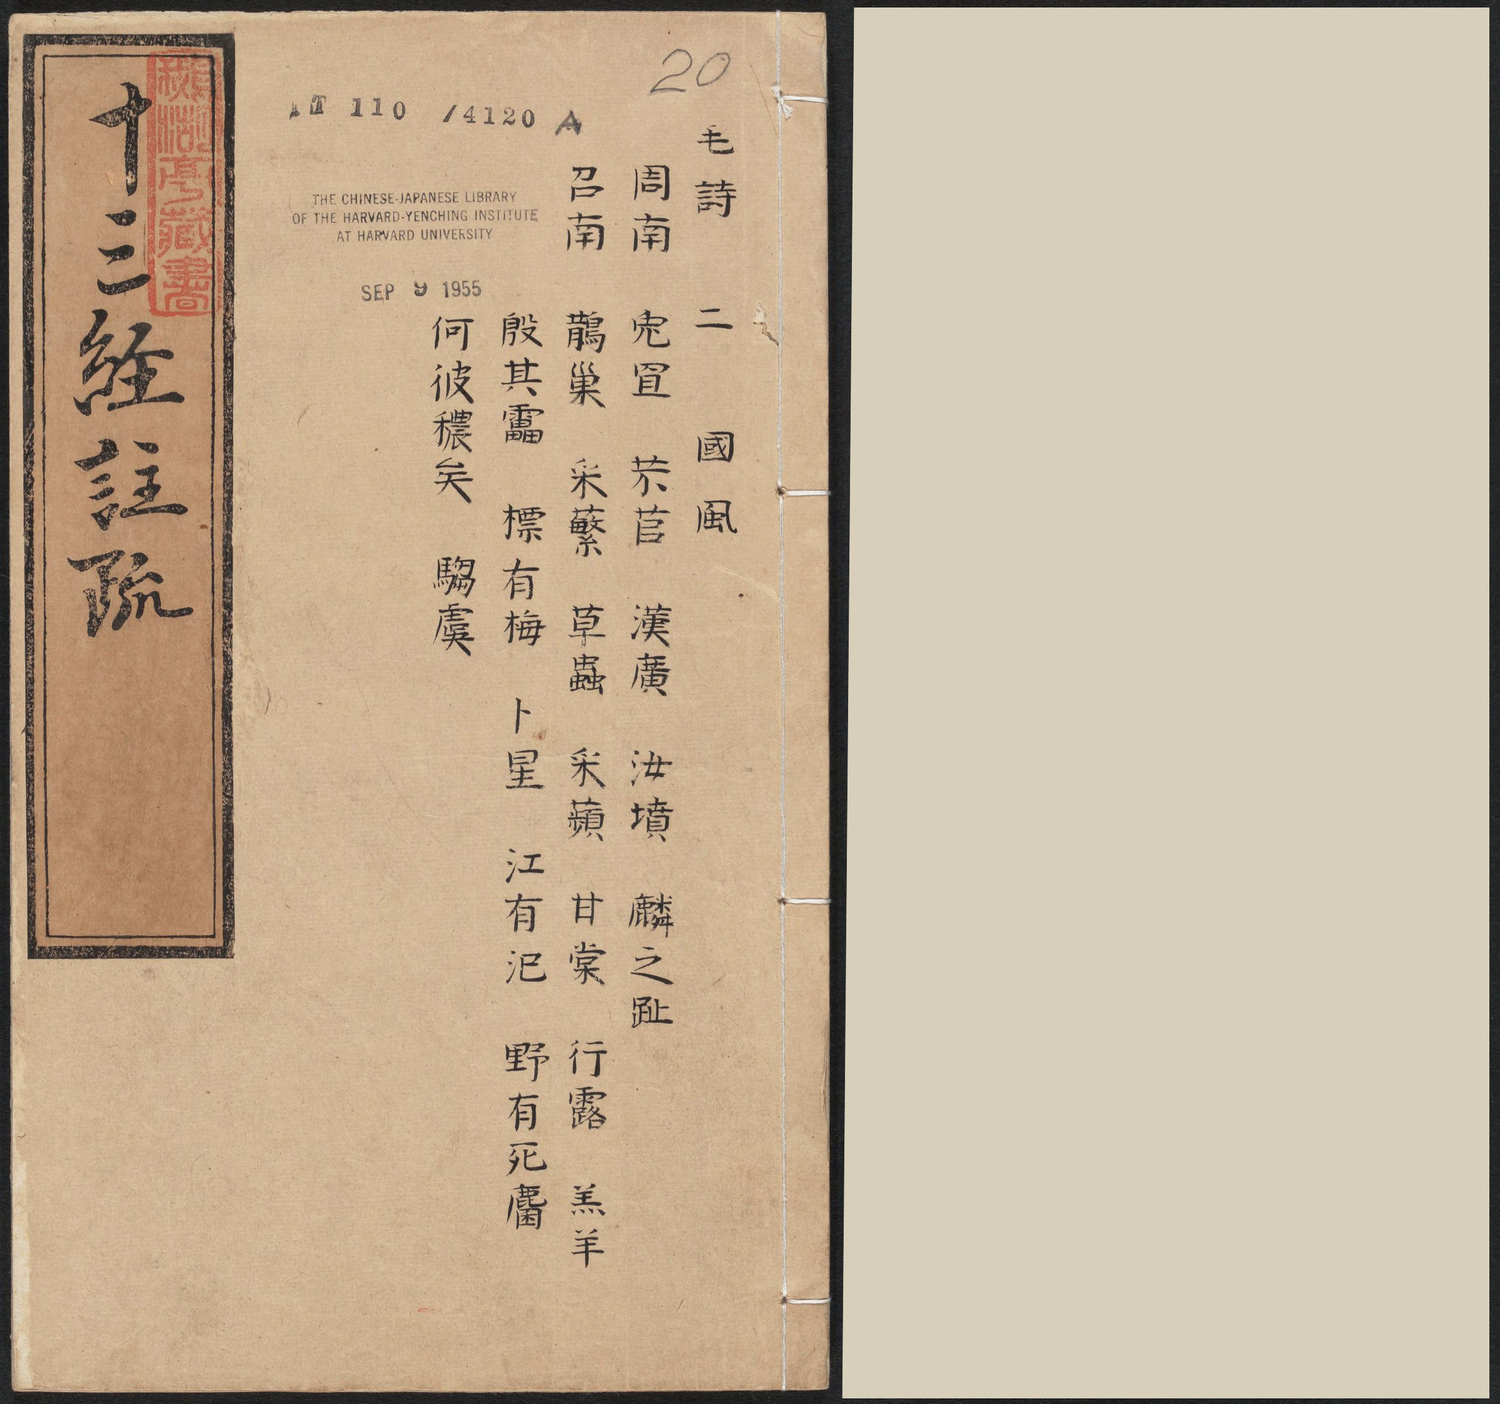 20
毛詩 二 國風
周南 兔罝 芣苢 漢廣 汝墳 麟之趾
召南 鵲巢 采蘩 草蟲 采蘋 甘棠 行露 羔羊
殷其靁 標有梅 卜星 江有汜 野有死麕
何彼穠矣 騶虞
T 110 /4120 A
THE CHINESE-JAPANESE LIBRARY
OF THE HARVARD-YENCHING INSTITUTE
AT HARVARD UNIVERSITY
SEP 9 1955
十三經註疏
藏書